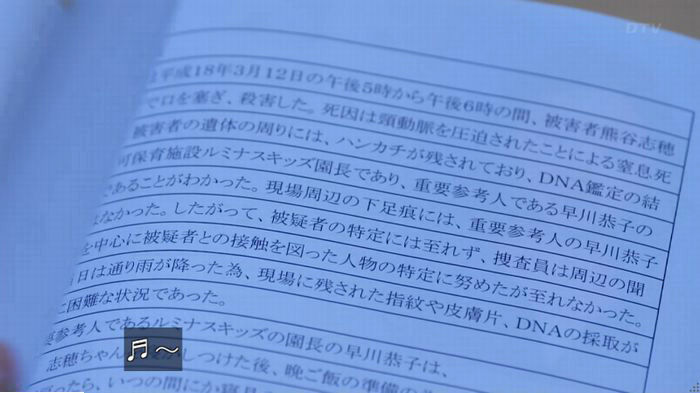 DTV
平成18年3月12日の午後5時から午後6時の間、被害者熊谷志穂
で口を塞ぎ、殺害した。死因は頸動脈を圧迫されたことによる窒息死
被害者の遺体の周りには、ハンカチが残されており、DNA鑑定の結
可保育施設ルミナスキッズ園長であり、重要参考人である早川恭子の
であることがわかった。現場周辺の下足痕には、重要参考人の早川恭子
なかった。したがって、被疑者の特定には至れず、捜査員は周辺の聞
を中心に被疑者との接触を図った人物の特定に努めたが至れなかった。
日は通り雨が降った為、現場に残された指紋や皮膚片、DNAの採取が
困難な状況であった。
要参考人であるルミナスキッズの園長の早川恭子は、
志穂ちゃん しつけた後、晩ご飯の準備の
ったら、いつの間にか寝
♬～